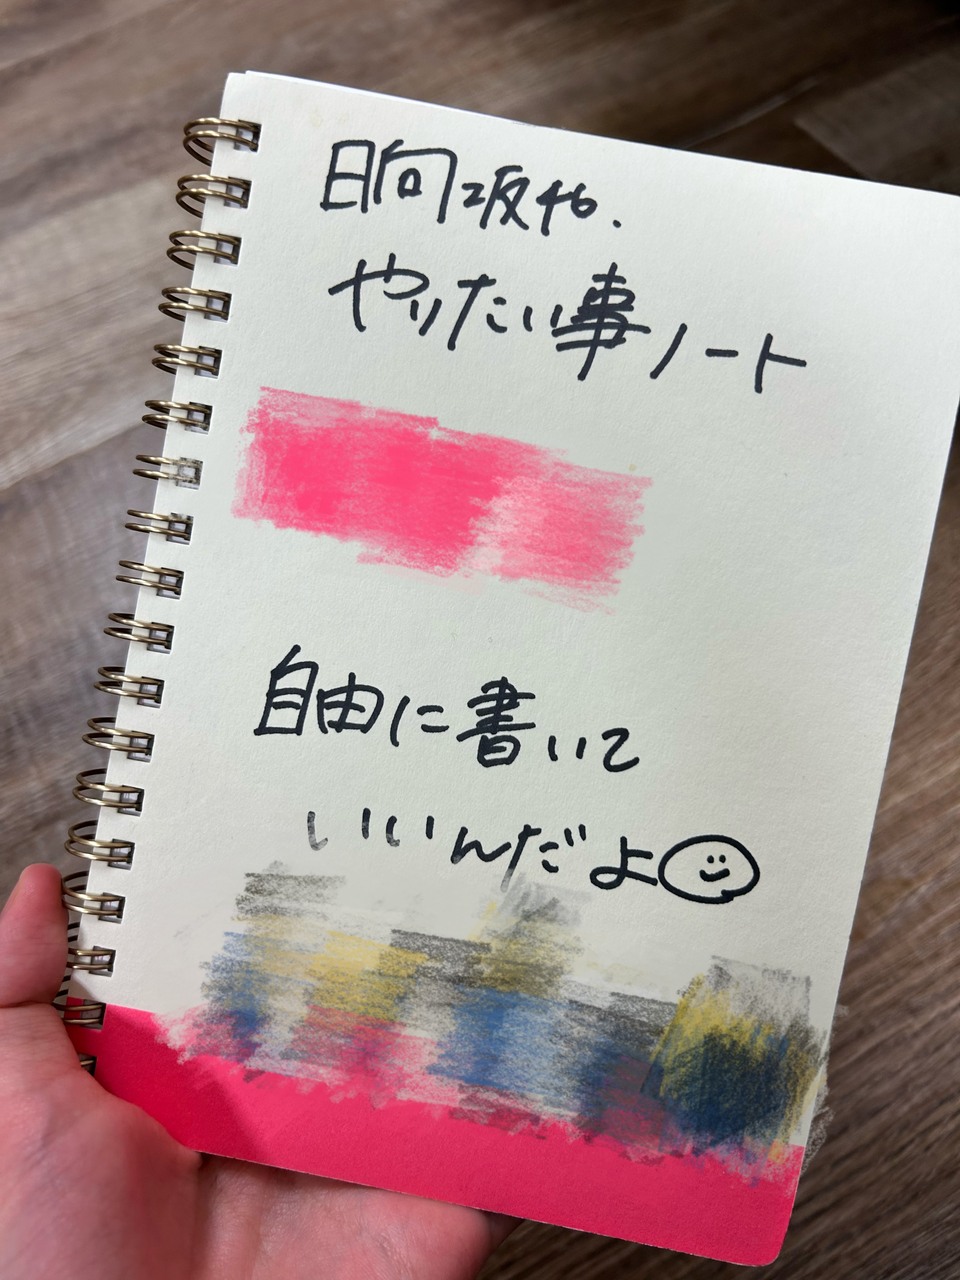 日向坂46.
やりたい事ノート
自由に書いて
いいんだよ